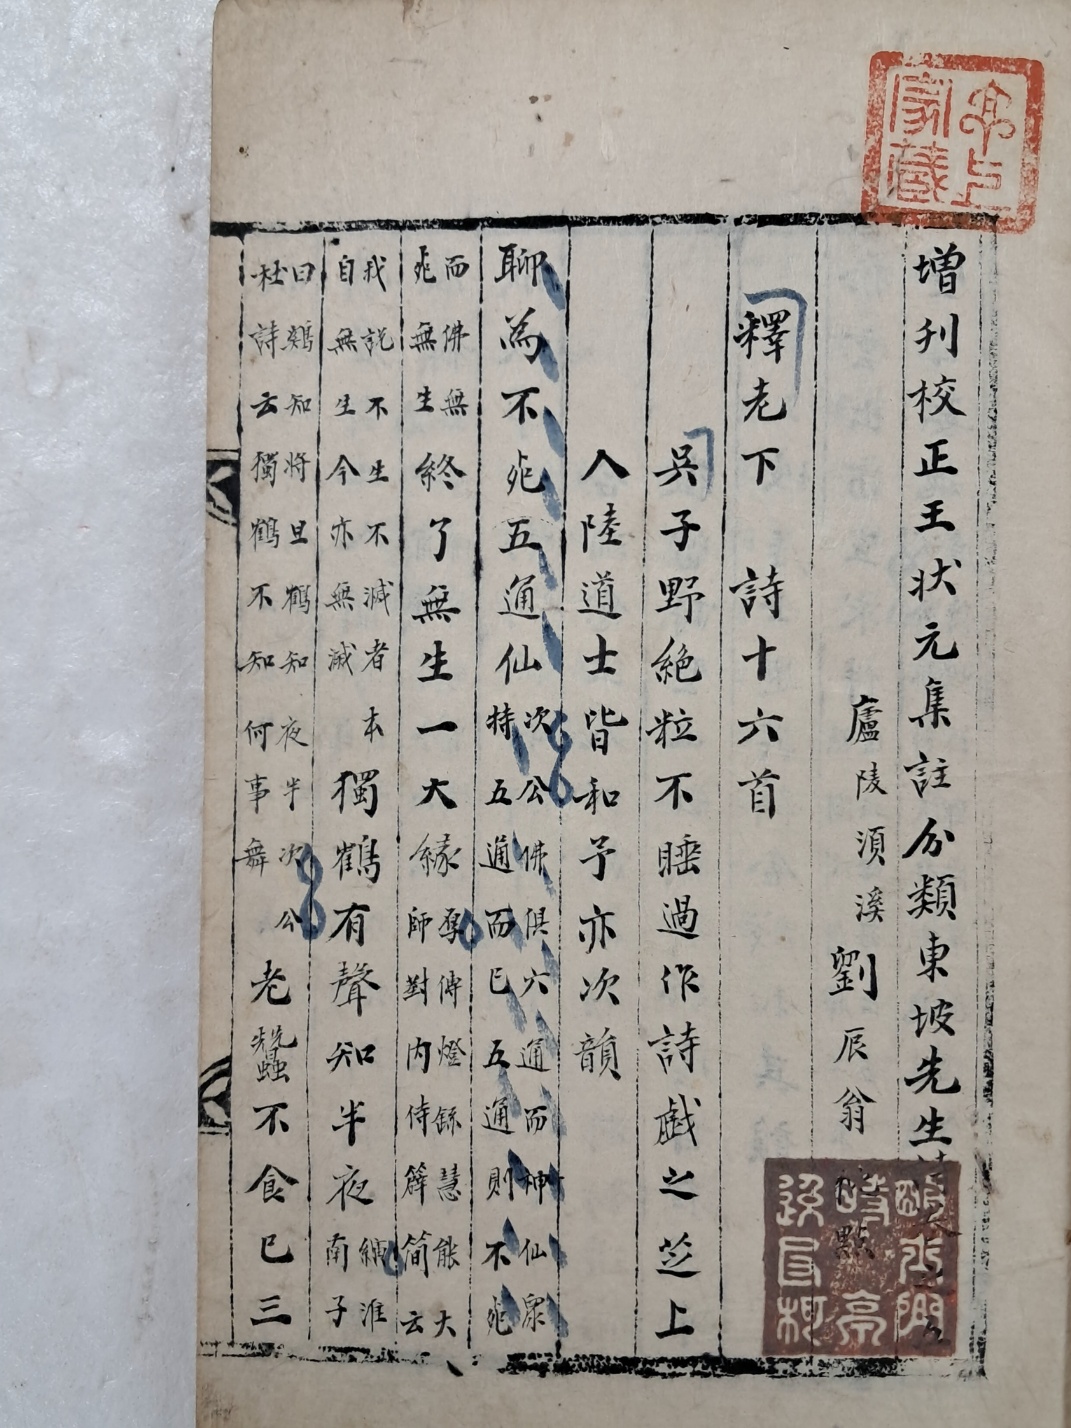 增刋校正王狀元集註分類東坡先生
廬陵須溪劉辰翁 點
釋老下 詩十六首
吳子野絶粒不睡過作詩戯之芝上
入陸道士皆和予亦次韻
聊為不死五通仙次公佛俱六通而神仙衆
特五通而已五通則不死
而佛無
死無生終了無生一大緣厚傅燈録慧能大
師對内侍薛簡云
我説不生不滅者本
自無生今亦無滅獨鶴有聲知半夜縯淮
南子
曰鷄知將旦鶴知夜半次公
杜詩云獨鶴不知何事舞老蠶不食已三
家藏